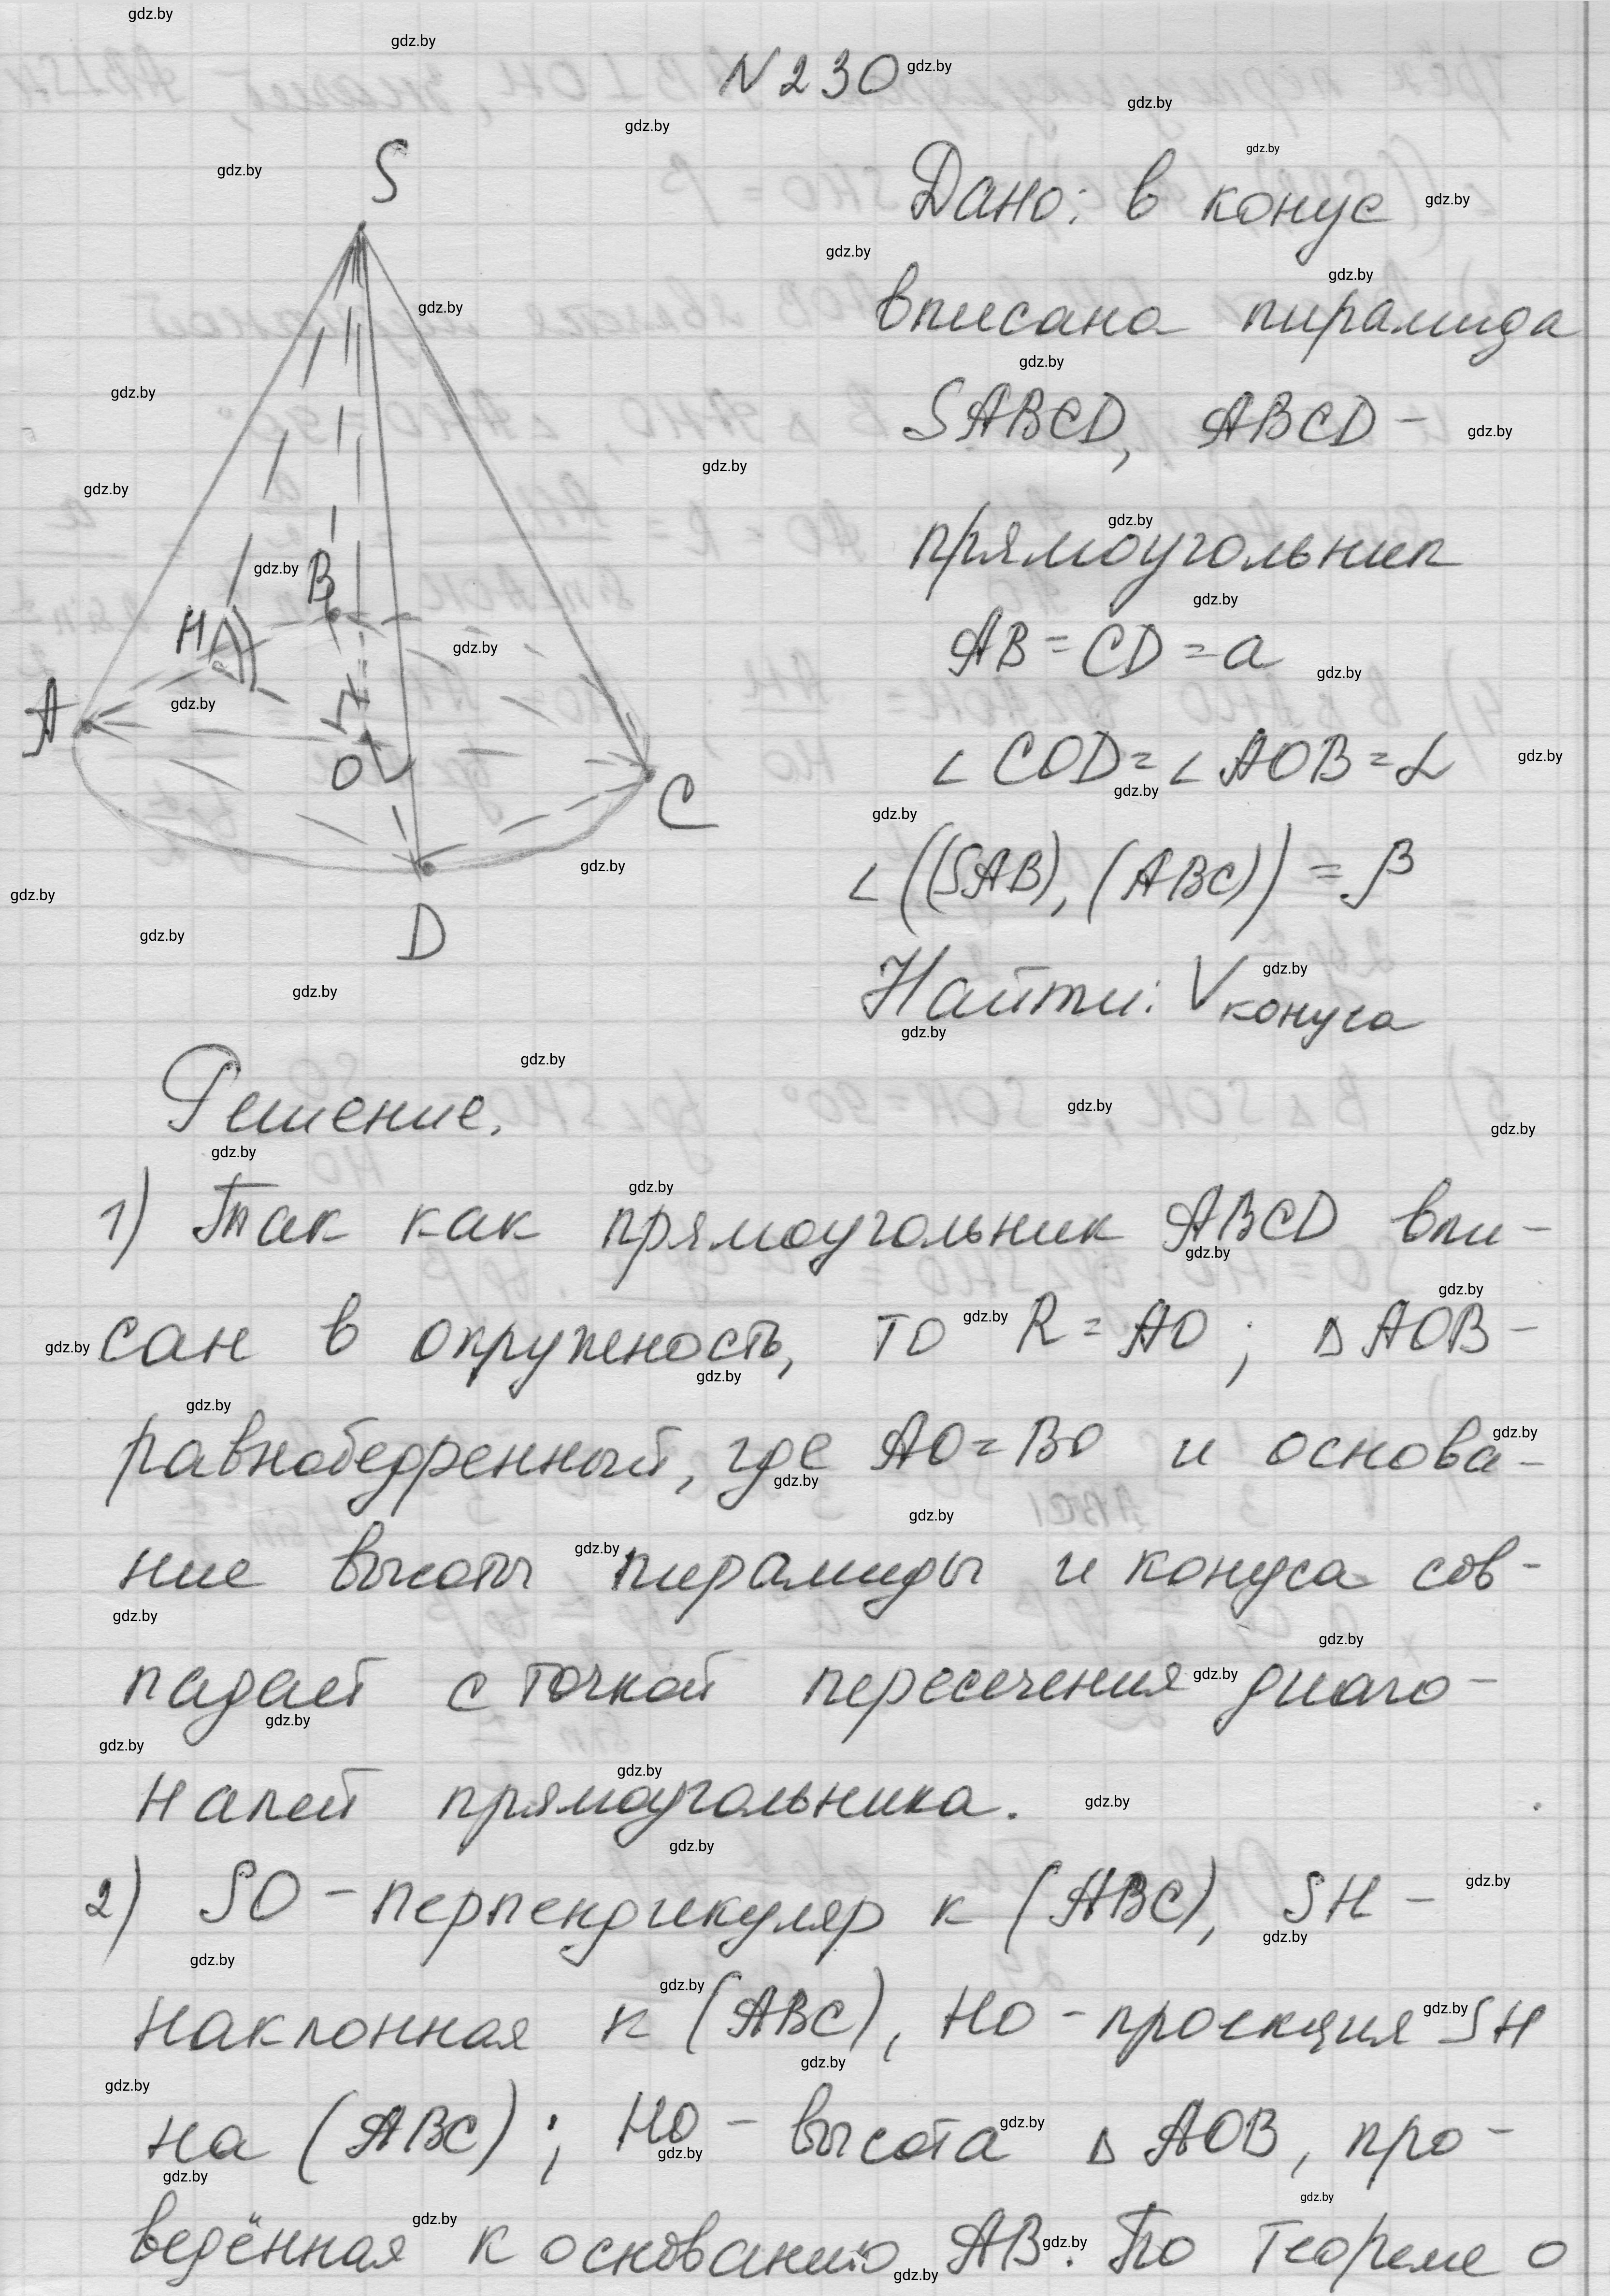 N 230
S
Дано: в конус
вписана пирамида
SABCD, ABCD -
прямоугольник
B
H
AB = CD = a
A
∠COD = ∠AOB = α
O
C
∠((SAB), (ABC)) = β
D
Найти: Vконуса
Решение.
1) Так как прямоугольник ABCD впи-
сан в окружность, то R = AO; ΔAOB -
равнобедренный, где AO = BO и основа-
ние высоты пирамиды и конуса сов-
падает с точкой пересечения диаго-
налей прямоугольника.
2) SO - перпендикуляр к (ABC), SH -
наклонная к (ABC), HO - проекция SH
на (ABC); HO - высота Δ AOB, про-
ведённая к основанию AB. По теореме о
gdz.by